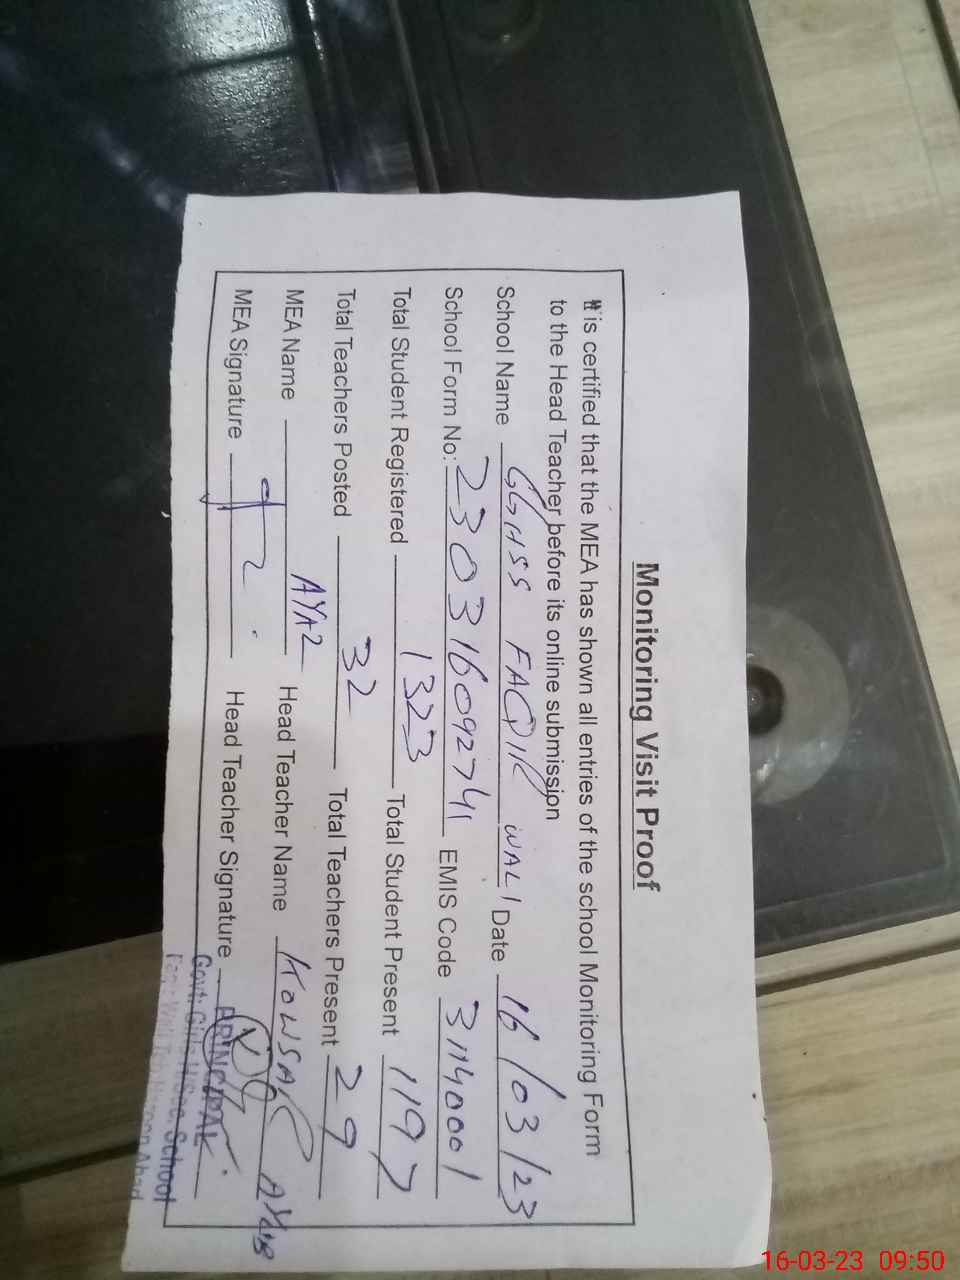 Monitoring Visit Proof
It is certified that the MEA has shown all entries of the school Monitoring Form
to the Head Teacher before its online submission
School Name GGHSS FAQIR WALI Date 16/03/23
School Form No: 230316092741 EMIS Code 31140001
Total Student Registered 1323 Total Student Present 1197
Total Teachers Posted 32 Total Teachers Present 29
MEA Name AYAZ Head Teacher Name KOWSAR AYUB
MEA Signature Head Teacher Signature
PRINCIPAL
Govt: Girls H.Sec. School
16-03-23 09:50